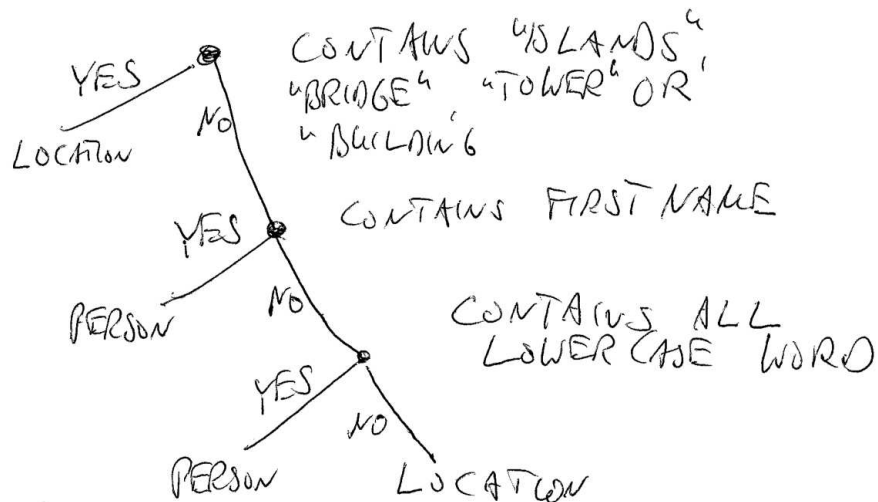 CONTAINS "ISLANDS"
YES
"BRIDGE", "TOWER" OR
NO
"BUILDING
LOCATION
YES
CONTAINS FIRST NAME
PERSON
NO
CONTAINS ALL
LOWERCASE WORD
YES
NO
PERSON
LOCATION